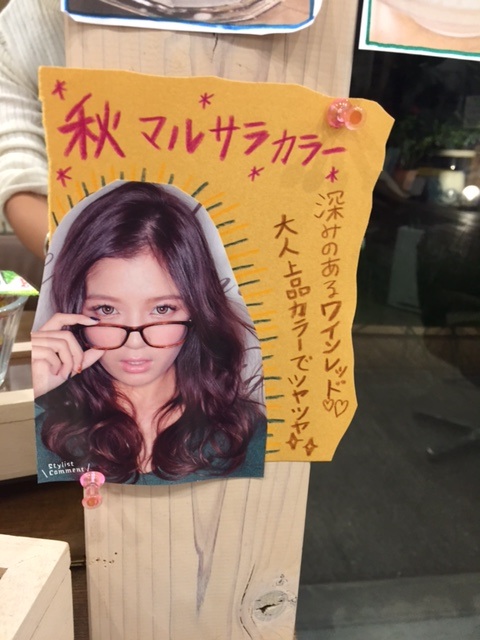 秋 マルサラカラー
深みのあるワインレッド♡♡
大人上品カラーでツヤツヤ
Stylist
Comment